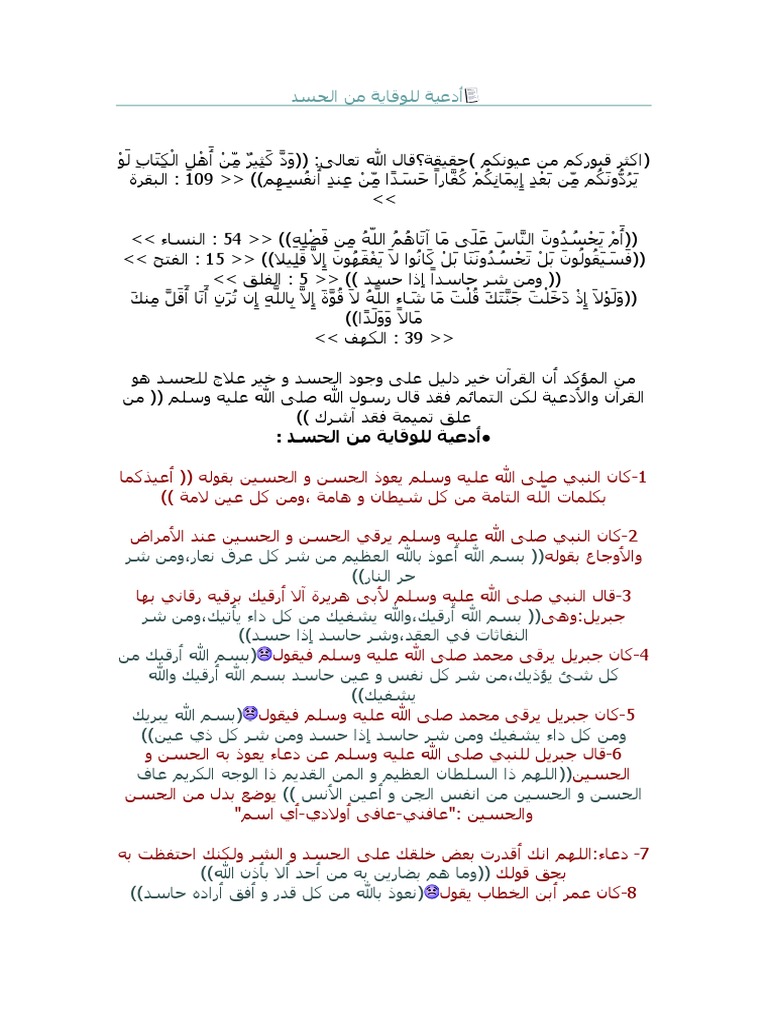 أدعية للوقاية من الحسد
(اكثر قبوركم من عيونكم )حقيقة؟قال الله تعالى: ((وَدَّ كَثِيرٌ مِّنْ أَهْلِ الْكِتَابِ لَوْ
يَرُدُّونَكُم مِّن بَعْدِ إِيمَانِكُمْ كُفَّاراً حَسَدًا مِّنْ عِندِ أَنفُسِهِم)) << 109 : البقرة
>>
((أَمْ يَحْسُدُونَ النَّاسَ عَلَى مَا آتَاهُمُ اللّهُ مِن فَضْلِهِ)) << 54 : النساء >>
((فَسَيَقُولُونَ بَلْ تَحْسُدُونَنَا بَلْ كَانُوا لاَ يَفْقَهُونَ إِلاَّ قَلِيلا)) << 15 : الفتح >>
(( ومن شر حاسداً إذا حسد )) << 5 : الفلق >>
((وَلَوْلاَ إِذْ دَخَلْتَ جَنَّتَكَ قُلْتَ مَا شَاء اللَّهُ لاَ قُوَّةَ إِلاَّ بِاللَّهِ إِن تُرَنِ أَنَا أَقَلَّ مِنكَ
مَالاً وَوَلَدًا))
<< 39 : الكهف >>
من المؤكد أن القرآن خير دليل على وجود الحسد و خير علاج للحسد هو
القرآن والأدعية لكن التمائم فقد قال رسول الله صلى الله عليه وسلم (( من
علق تميمة فقد آشرك ))
●أدعية للوقاية من الحسد :
1-كان النبي صلى الله عليه وسلم يعوذ الحسن و الحسين بقوله (( أعيذكما
بكلمات الله التامة من كل شيطان و هامة ،ومن كل عين لامة ))
2-كان النبي صلى الله عليه وسلم يرقي الحسن و الحسين عند الأمراض
والأوجاع بقوله(( بسم الله أعوذ بالله العظيم من شر كل عرق نعار،ومن شر
حر النار))
3-قال النبي صلى الله عليه وسلم لأبى هريرة آلا أرقيك برقيه رقاني بها
جبريل:وهى(( بسم الله أرقيك،والله يشفيك من كل داء يأتيك،ومن شر
النفاثات في العقد،وشر حاسد إذا حسد))
4-كان جبريل يرقى محمد صلى الله عليه وسلم فيقول(بسم الله أرقيك من
كل شئ يؤذيك،من شر كل نفس و عين حاسد بسم الله أرقيك والله
يشفيك))
5-كان جبريل يرقى محمد صلى الله عليه وسلم فيقول(بسم الله يبريك
ومن كل داء يشفيك ومن شر حاسد إذا حسد ومن شر كل ذي عين))
6-قال جبريل للنبي صلى الله عليه وسلم عن دعاء يعوذ به الحسن و
الحسين((اللهم ذا السلطان العظيم و المن القديم ذا الوجه الكريم عاف
الحسن و الحسين من انفس الجن و أعين الأنس )) يوضع بدل من الحسن
والحسين :"عافني-عافى أولادي-أي اسم"
7- دعاء:اللهم انك أقدرت بعض خلقك على الحسد و الشر ولكنك احتفظت به
بحق قولك ((وما هم بضارين به من أحد ألا بأذن الله))
8-كان عمر أبن الخطاب يقول(نعوذ بالله من كل قدر و أفق أراده حاسد))